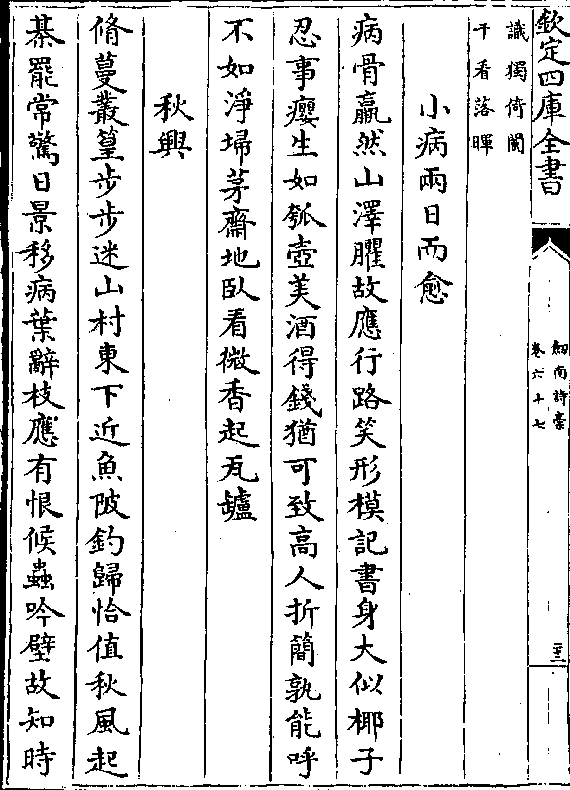 欽定四庫全書
劒南詩藁
卷六十七
識獨倚闌
干看落暉
小病兩日而愈
病骨羸然山澤臞故應行路笑形模記書身大似椰子
忍事癭生如瓠壺美酒得錢猶可致高人折簡孰能呼
不如淨埽茅齋地臥看微香起瓦罏
秋興
脩蔓叢篁步步迷山村東下近魚陂釣歸恰值秋風起
棊罷常驚日景移病葉辭枝應有恨候蟲吟壁故知時